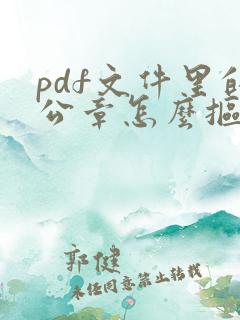 pdf文件里的
公章怎么抠
郭健
未经同意禁止转载